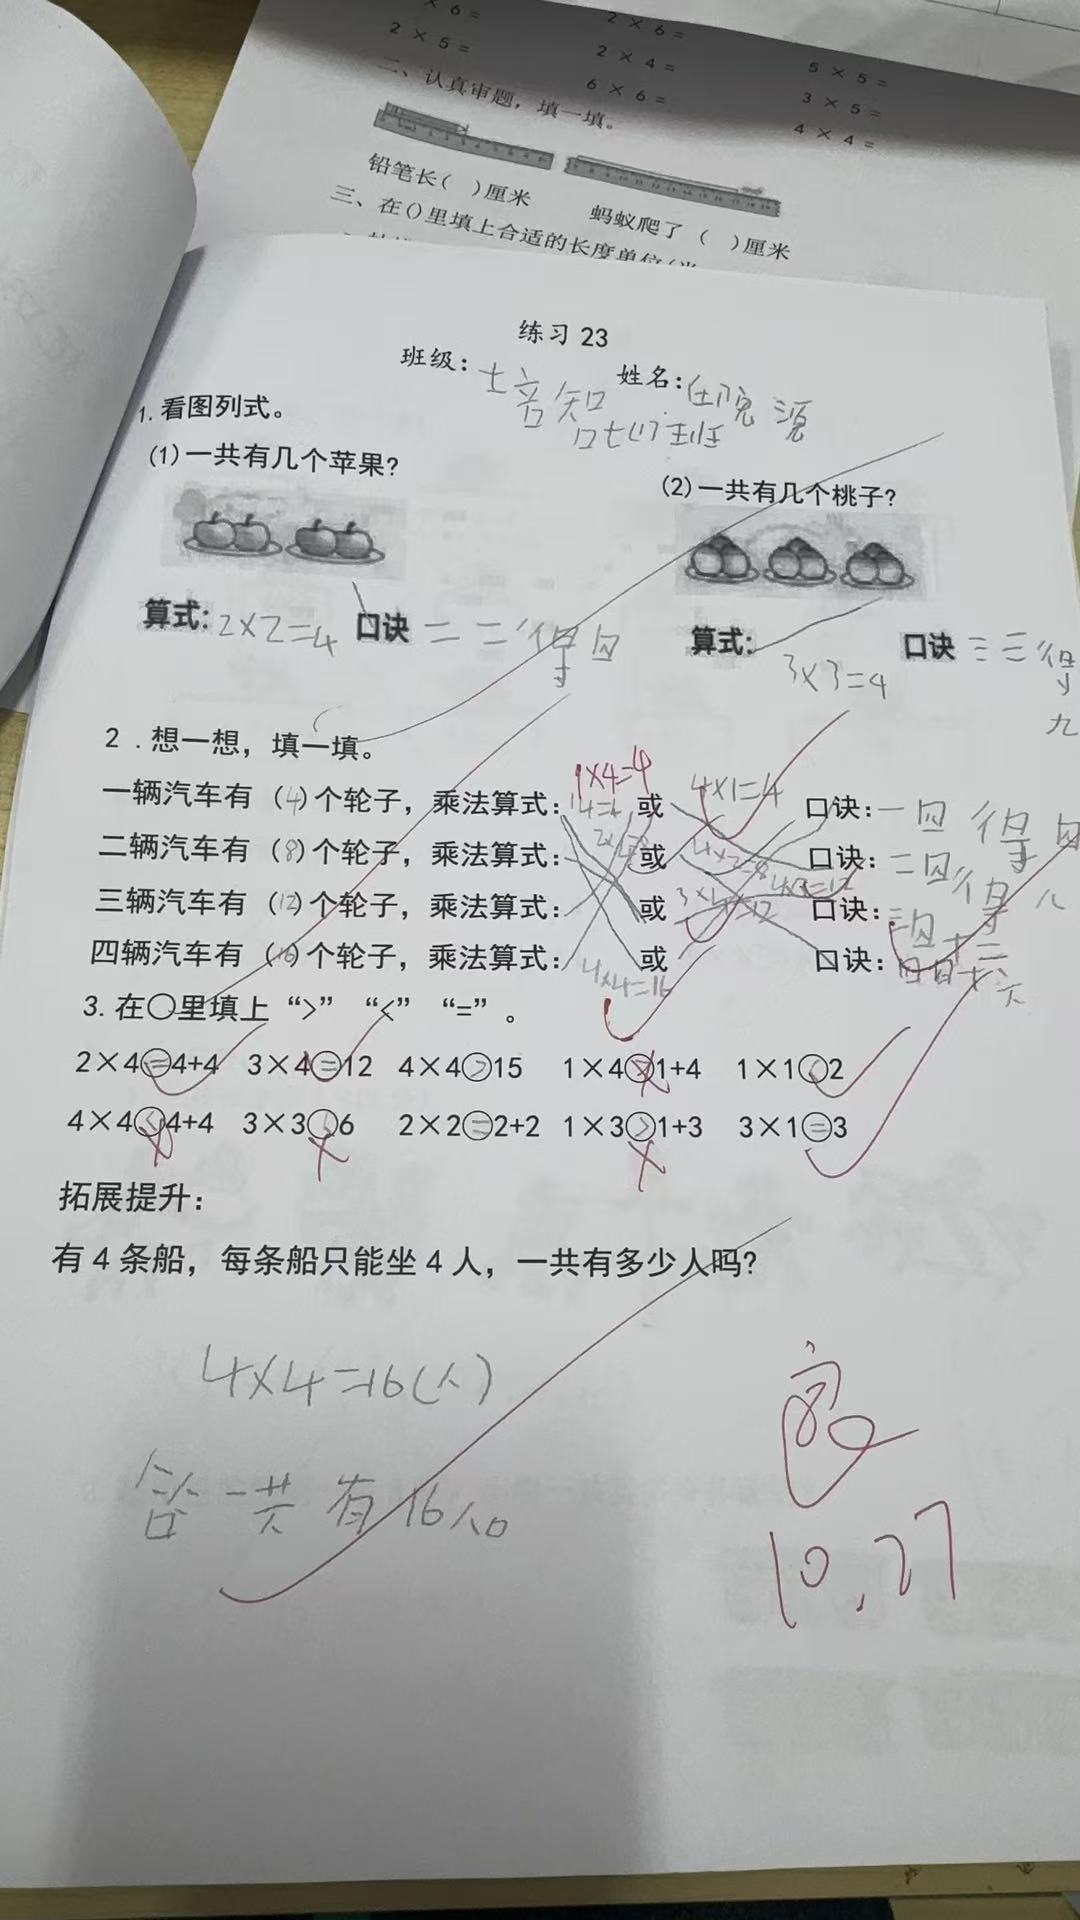 ×6=
2×6=
2×5=
2×4=
5×5=
6×6=
3×5=
4×4=
二、认真审题，填一填。
铅笔长（ ）厘米
蚂蚁爬了（ ）厘米
三、在()里填上合适的长度单位(米
练习 23
班级：培智
姓名：
1.看图列式。
(1)一共有几个苹果?
(2)一共有几个桃子?
算式：2×2=4 口诀 二二得四
算式：3×3=4 口诀 三三得九
2.想一想，填一填。
1×4=4
一辆汽车有（4）个轮子，乘法算式：14=4 或 4×1=4 口诀：一四得四
二辆汽车有（8）个轮子，乘法算式： 或 4×2=8 口诀：二四得八
三辆汽车有（12）个轮子，乘法算式： 或 3×4=12 4×3=12 口诀：三四十二
四辆汽车有（16）个轮子，乘法算式：4×4=16 或 口诀：四四十六
3.在○里填上“>”“<”“=”。
2×4=4+4 3×4=12 4×4>15 1×4>1+4 1×1<2
4×4<4+4 3×3 6 2×2=2+2 1×3>1+3 3×1=3
拓展提升：
有 4 条船，每条船只能坐 4 人，一共有多少人吗?
4×4=16(人)
答一共有16人。
10.27